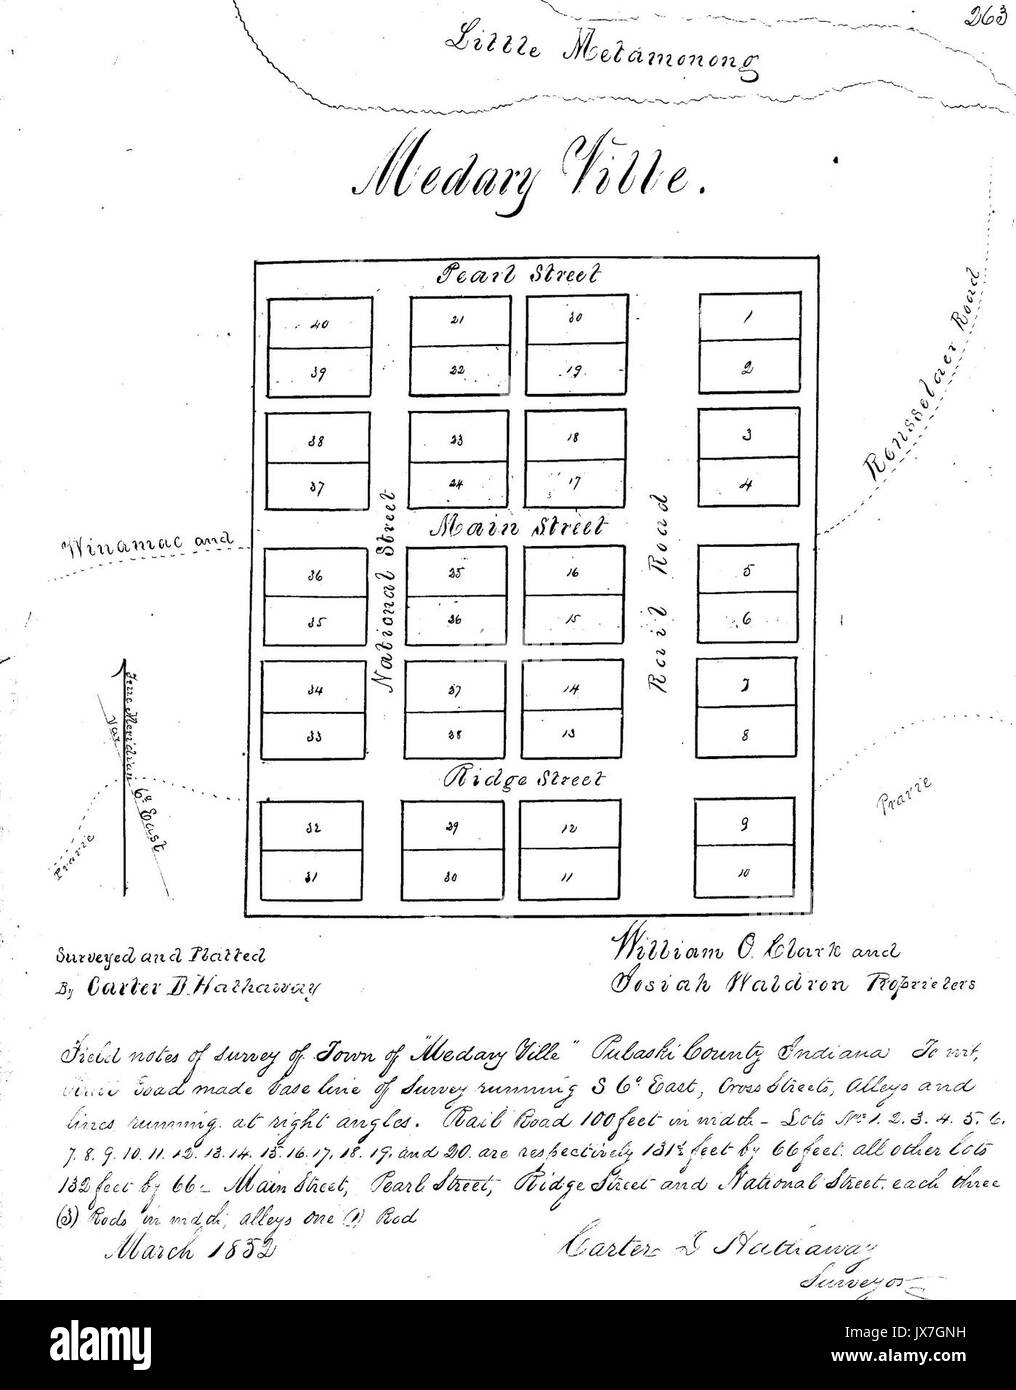 263
Little Metamonong
Medary Ville.
Pearl Street
40 21 20 1
39 22 19 2
38 23 18 3
37 24 17 4
National Street
Main Street
Rail Road
Rensselaer Road
Winamac and
36 25 16 5
35 26 15 6
34 27 14 7
33 28 13 8
True Meridian
Var 6° East
Prarie
Ridge Street
Prarie
32 29 12 9
31 30 11 10
Surveyed and Platted
By Carter D. Hathaway
William O. Clark and
Josiah Waldron Proprieters
Field notes of survey of Town of "Medary Ville" Pulaski County Indiana To wit,
Road made base line of survey running S 6° East, Cross Streets, Alleys and
lines running at right angles. Rail Road 100 feet in width - Lots Nos 1. 2. 3. 4. 5. 6.
7. 8. 9. 10. 11. 12. 13. 14. 15. 16. 17. 18. 19. and 20. are respectively feet by 66 feet. all other lots
132 feet by 66 - Main Street, Pearl Street, Ridge Street and National Street. each three
(3) Rods in width, alleys one (1) Rod
March 1852
Carter D Hathaway
Surveyor
alamy
Image ID: JX7GNH
www.alamy.com